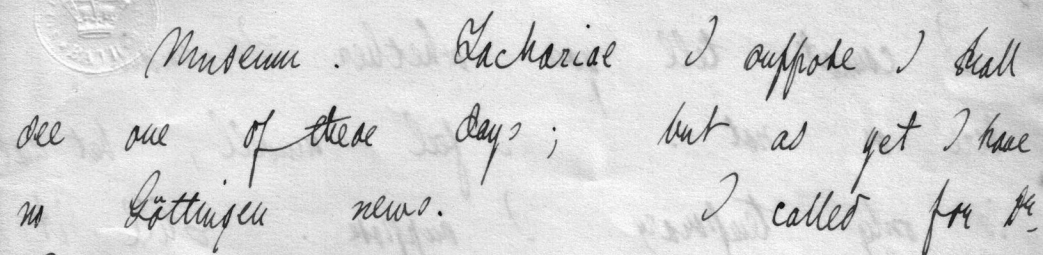 Museum. Zachariae I suppose I shall
see one of these days; but as yet I have
no Göttingen news. I called for Dr.